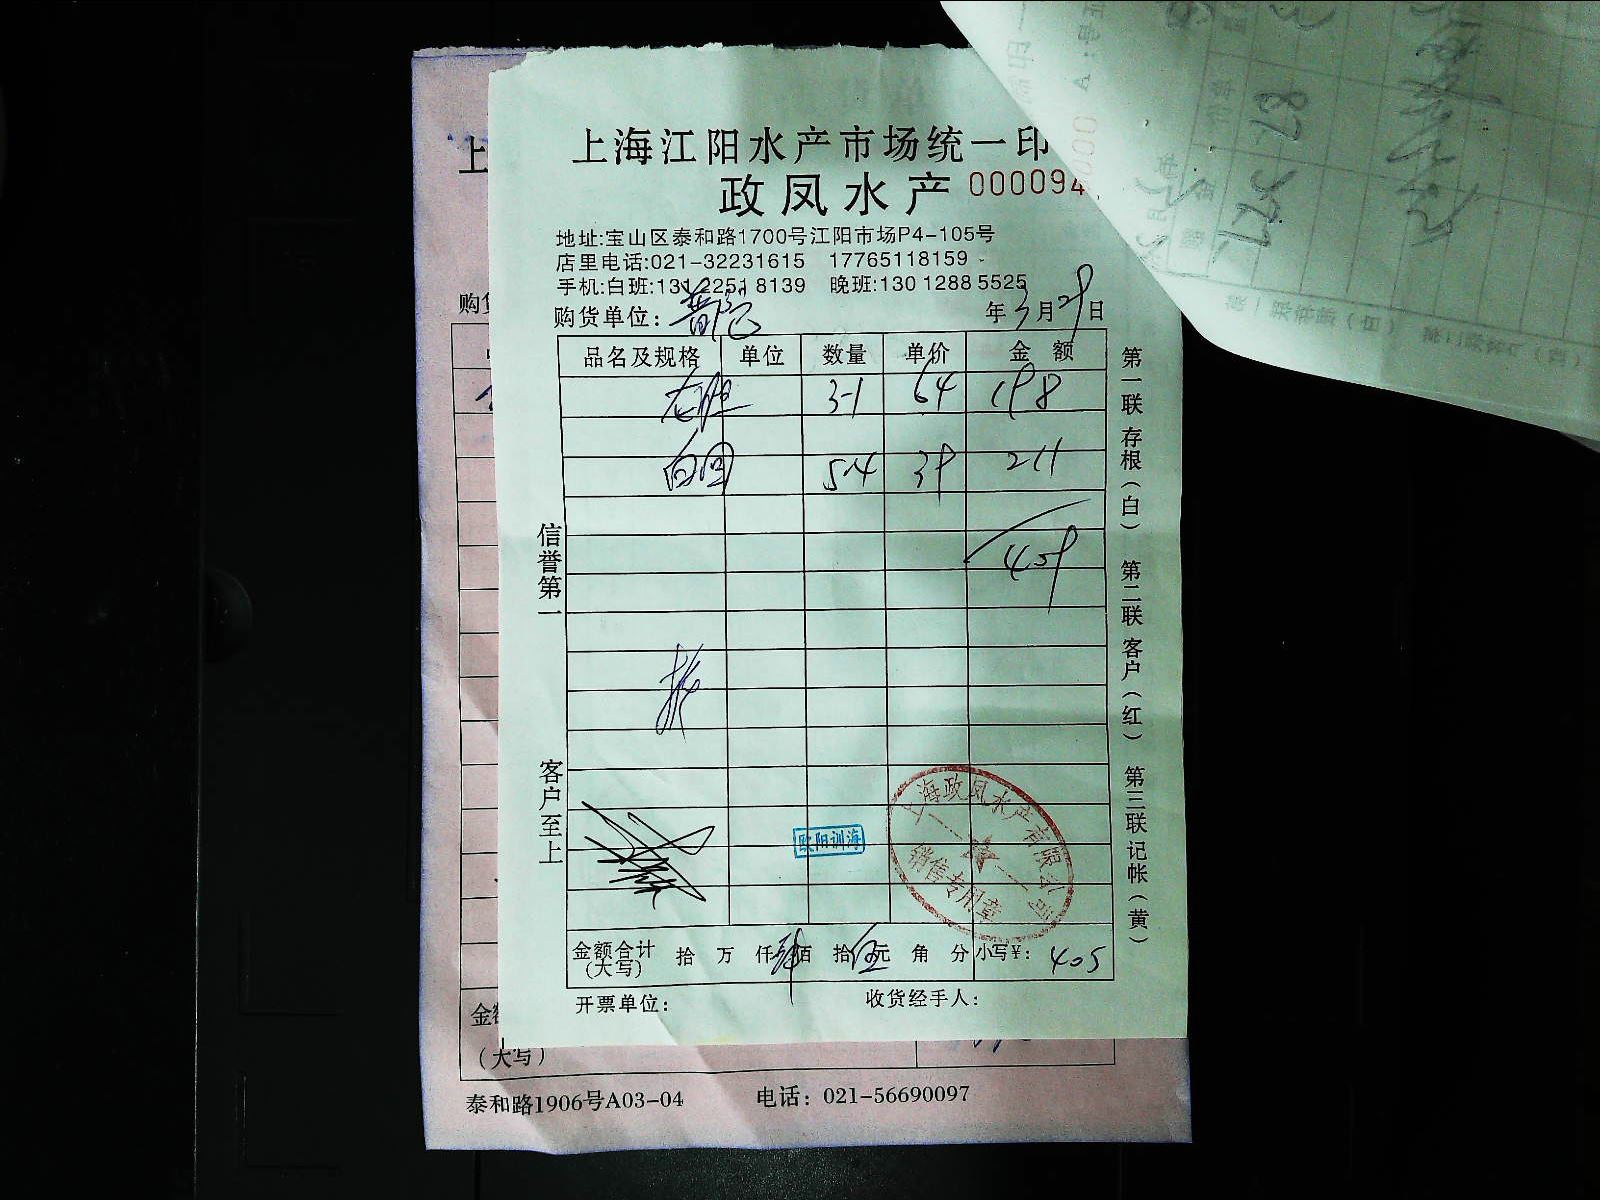 上海江阳水产市场统一印
政凤水产 0000094
地址:宝山区泰和路1700号江阳市场P4-105号
店里电话:021-32231615 17765118159
手机:白班:131 2251 8139 晚班:130 1288 5525
购货单位: 年3月29日
品名及规格 单位 数量 单价 金额
3-1 64 198
5-4 39 211
409
信誉第一
客户至上
第一联存根(白) 第二联客户(红) 第三联记帐(黄)
欧阳训海
上海政凤水产有限公司
销售专用章
金额合计(大写) 拾 万 仟肆佰 拾伍元 角 分 小写¥: 405
开票单位: 收货经手人:
上
购货
金额
(大写)
泰和路1906号A03-04 电话: 021-56690097